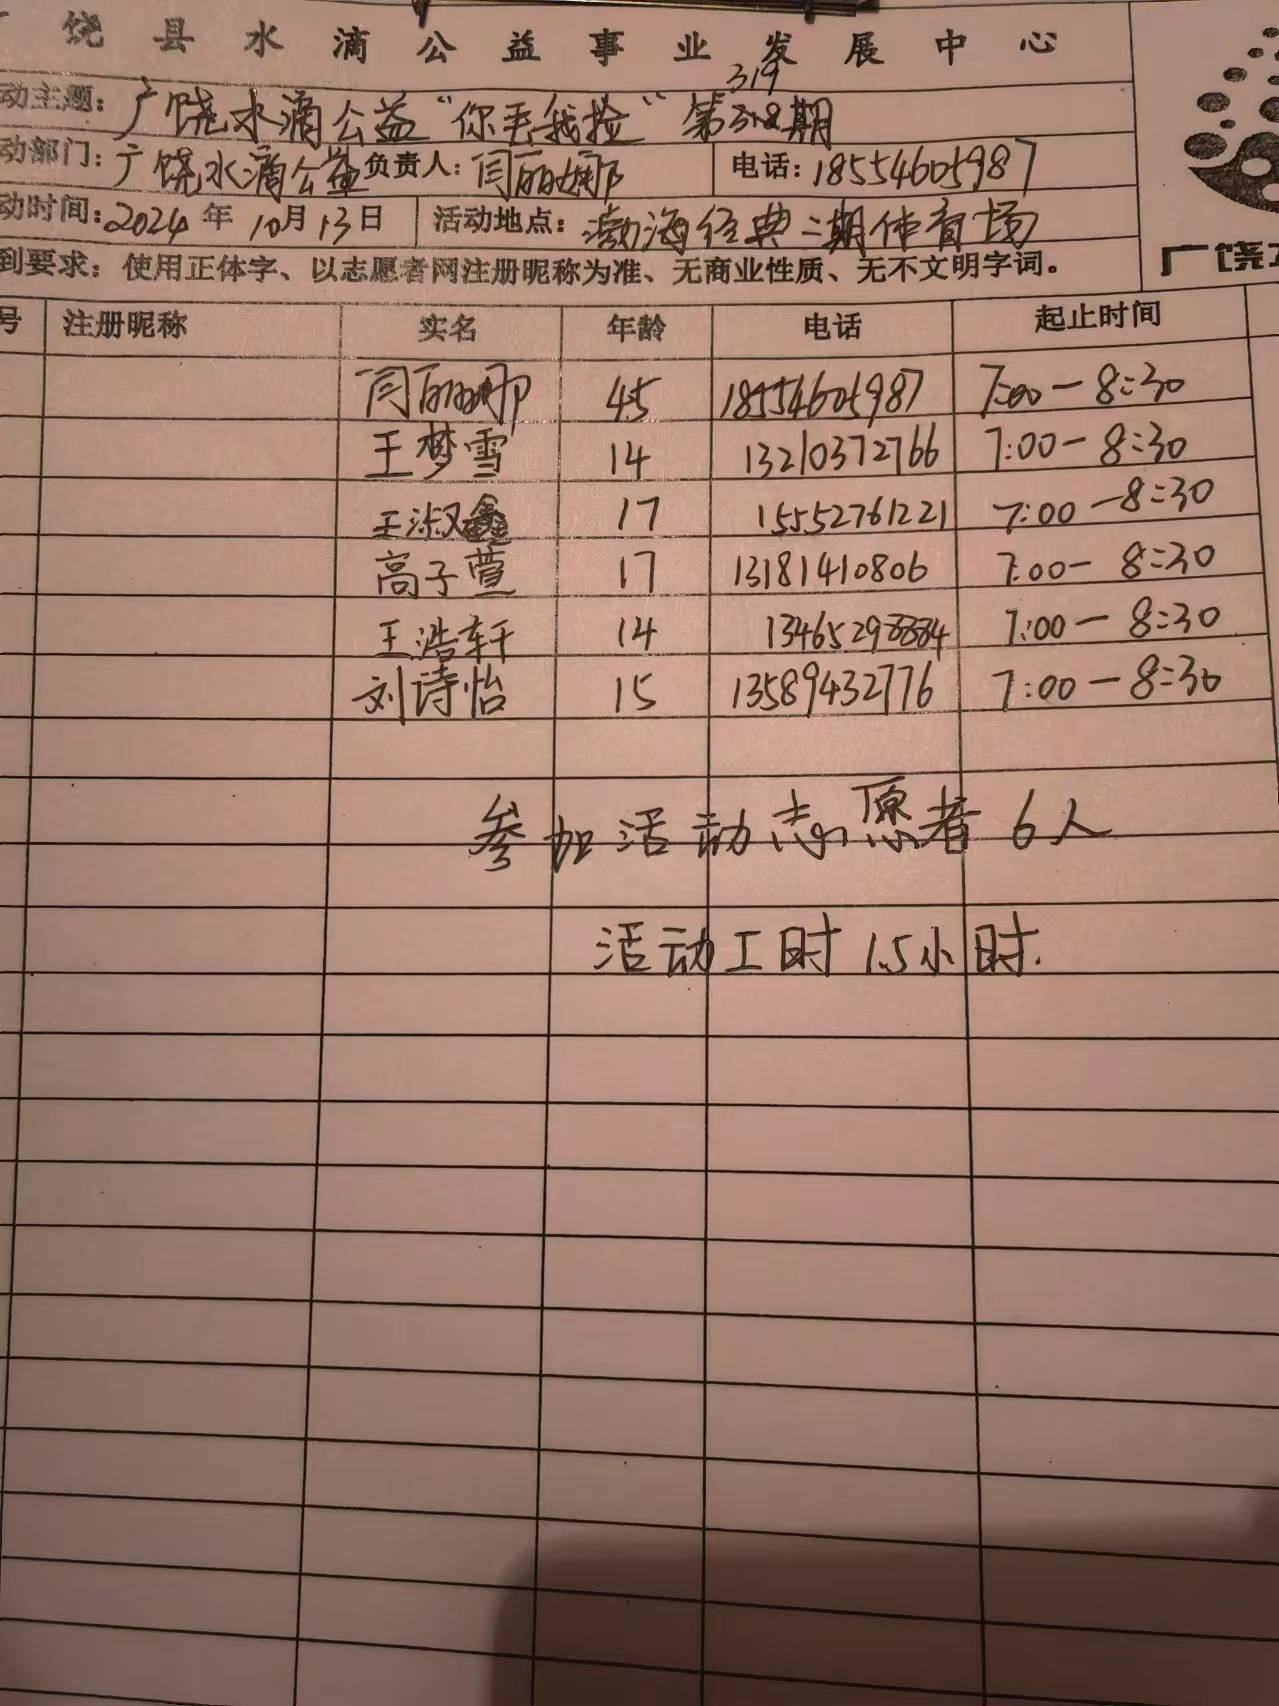 饶县水滴公益事业发展中心
动主题: 广饶水滴公益“你丢我捡”第319期
动部门: 广饶水滴公益 负责人: 闫丽娜 电话: 18554605987
动时间: 2024年10月13日 活动地点: 渤海经典二期体育场
到要求: 使用正体字、以志愿者网注册昵称为准、无商业性质、无不文明字词。
广饶
号 注册昵称 实名 年龄 电话 起止时间
闫丽娜 45 18554605987 7:00-8:30
王梦雪 14 13210372766 7:00-8:30
王淑鑫 17 15552761221 7:00-8:30
高子萱 17 13181410806 7:00-8:30
王浩轩 14 7:00-8:30
刘诗怡 15 13589432776 7:00-8:30
参加活动志愿者6人
活动工时1.5小时.